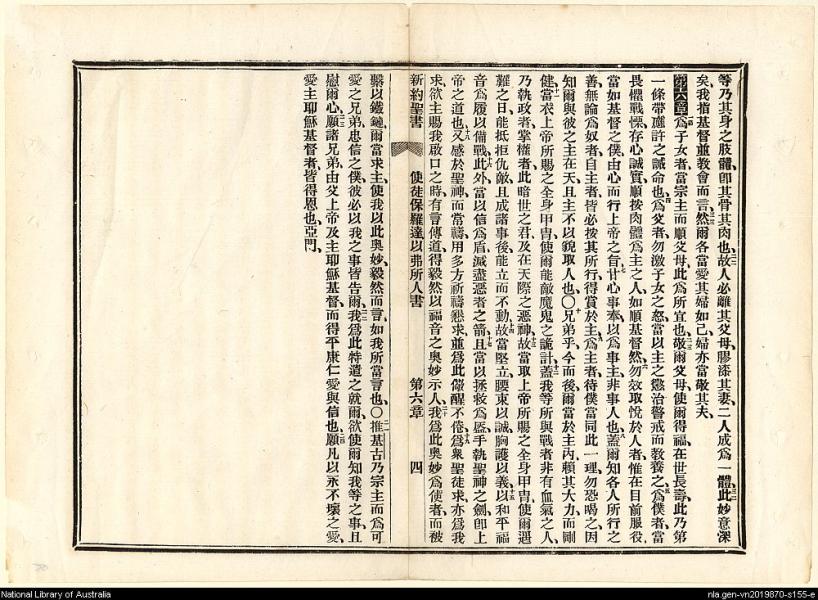 等乃其身之肢體、卽其骨其肉也、三一故人必離其父母、膠漆其妻、二人成爲一體、三二此妙意深
矣、我指基督並教會而言、三三然爾各當愛其婦如己、婦亦當敬其夫、
第六章一爲子女者、當宗主而順父母、此爲所宜也、二三敬爾父母、使爾得福、在世長壽、此乃第
一條帶應許之誡命也、四爲父者、勿激子女之怒、當以主之懲治警戒而教養之、五爲僕者、當
畏懼戰慄、存心誠實、順按肉體爲主之人、如順基督然、六勿效取悅於人者、惟在目前服役、
當如基督之僕、由心而行上帝之旨、七甘心事奉、以爲事主、非事人也、八蓋爾知各人所行之
善、無論爲奴者自主者、皆必按其所行、得賞於主、九爲主者、待僕當同此一理、勿恐喝之、因
知爾與彼之主在天、且主不以貌取人也、〇十兄弟乎、今而後爾當於主內、賴其大力而剛
健、十一當衣上帝所賜之全身甲冑、使爾能敵魔鬼之詭計、十二蓋我等所與戰者、非有血氣之人、
乃執政者、掌權者、此暗世之君、及在天際之惡神、十三故當取上帝所賜之全身甲冑、使爾遇
難之日、能抵拒仇敵、且成諸事後、能立而不動、十四故當堅立、腰束以誠、胸護以義、十五以和平福
音爲履以備戰、十六此外當以信爲盾、滅盡惡者之箭、十七且當以拯救爲盔、手執聖神之劍、卽上
帝之道也、十八又感於聖神而常禱、用多方祈禱懇求、並爲此儆醒不倦、爲衆聖徒求、十九亦爲我
求、欲主賜我啟口之時、有言傳道、得毅然以福音之奧妙示人、二十我爲此奧妙爲使者、而被
新約聖書 使徒保羅達以弗所人書 第六章 四
繫以鐵鏈、爾當求主、使我以此奧妙、毅然而言、如我所當言也、〇二一推基古乃宗主而爲可
愛之兄弟、忠信之僕、彼必以我之事皆告爾、二二我爲此特遣之就爾、欲使爾知我等之事、且
慰爾心、二三願諸兄弟由父上帝、及主耶穌基督、而得平康仁愛與信也、二四願凡以永不壞之愛、
愛主耶穌基督者、皆得恩也、亞門、
National Library of Australia
nla.gen-vn2019870-s155-e